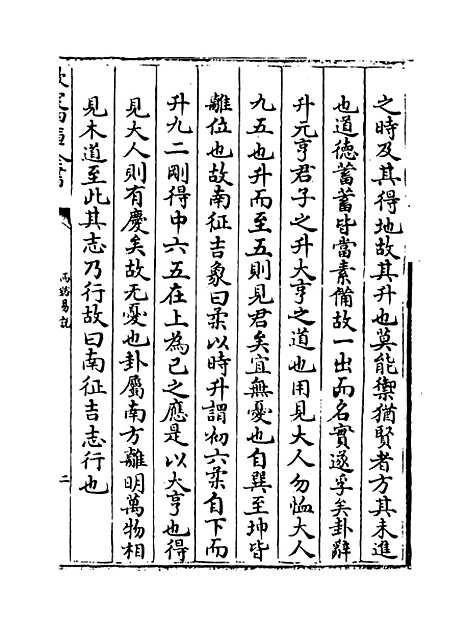 之時及其得地故其升也莫能禦猶賢者方其未進
也道徳蓄蓄皆當素備故一出而名實遂孚矣卦辭
升元亨君子之升大亨之道也用見大人勿恤大人
九五也升而至五則見君矣宜無憂也自巽至坤皆
離位也故南征吉象曰柔以時升謂初六柔自下而
升九二剛得中六五在上為已之應是以大亨也得
見大人則有慶矣故无憂也卦屬南方離明萬物相
見木道至此其志乃行故曰南征吉志行也
欽定四庫全書
易說
二